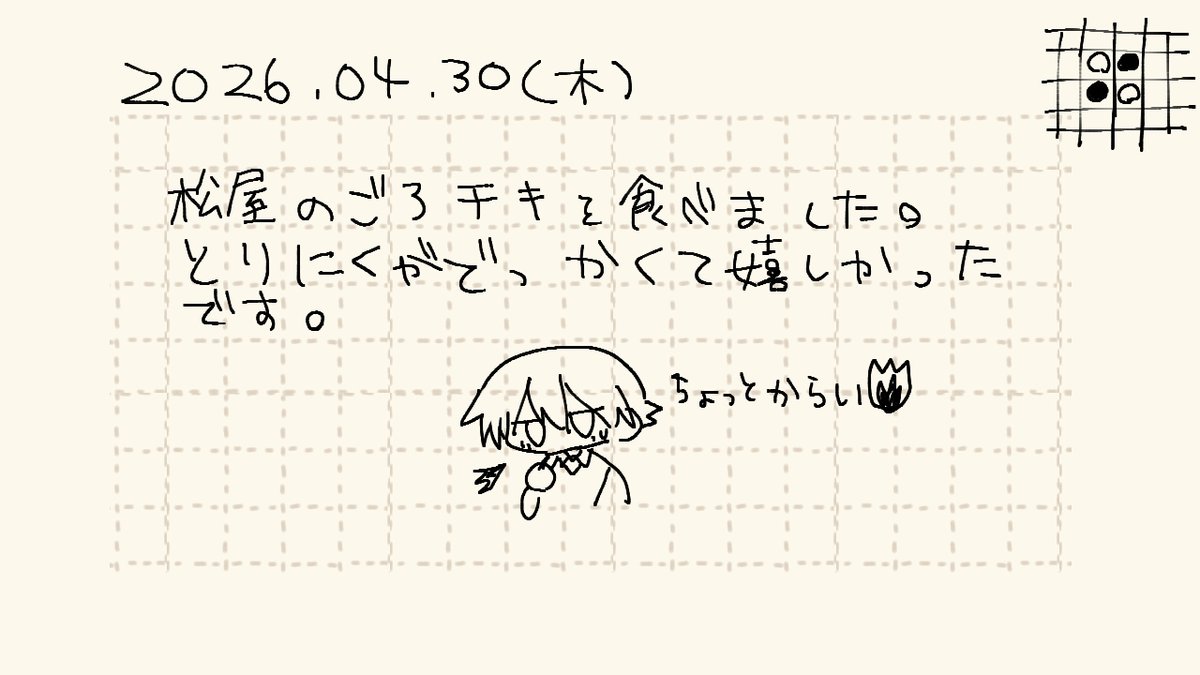 2026.04.30(木)
松屋のごろチキを食べました。
とりにくがでっかくて嬉しかった
です。
ちょっとからい